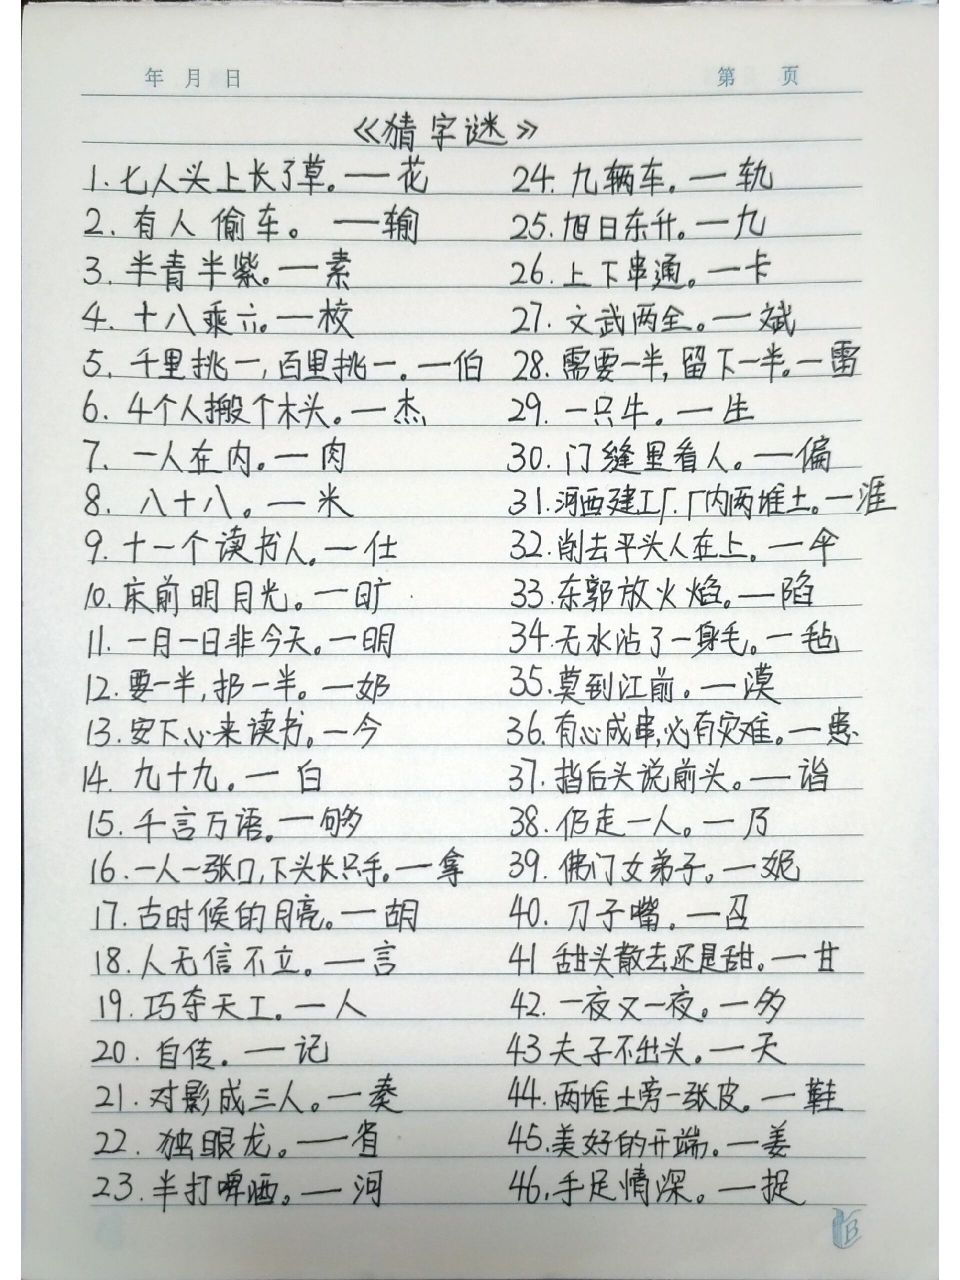 年 月 日
第 页
《猜字谜》
1.七人头上长了草。—花
2.有人偷车。—输
3.半青半紫。—素
4.十八乘六。—校
5.千里挑一,百里挑一。—伯
6.4个人搬个木头。—杰
7.一人在内。—肉
8.八十八。—米
9.十一个读书人。—仕
10.床前明月光。—旷
11.一月一日非今天。—明
12.要一半,扔一半。—奶
13.安下心来读书。—今
14.九十九。—白
15.千言万语。—够
16.一人一张口,下头长只手。—拿
17.古时候的月亮。—胡
18.人无信不立。—言
19.巧夺天工。—人
20.自传。—记
21.对影成三人。—奏
22.独眼龙。—省
23.半打啤酒。—河
24.九辆车。—轨
25.旭日东升。—九
26.上下串通。—卡
27.文武两全。—斌
28.需要一半,留下一半。—雷
29.一只牛。—生
30.门缝里看人。—偏
31.河西建工厂.厂内两堆土。—涯
32.削去平头人在上。—伞
33.东郭放火焰。—陷
34.无水沾了一身毛。—毡
35.莫到江前。—漠
36.有心成串,必有灾难。—患
37.挡后头说前头。—诣
38.仍走一人。—乃
39.佛门女弟子。—妮
40.刀子嘴。—召
41 甜头散去还是甜。—甘
42.一夜又一夜。—多
43夫子不出头。—天
44.两堆土旁一张皮。—鞋
45.美好的开端。—姜
46.手足情深。—捉
B